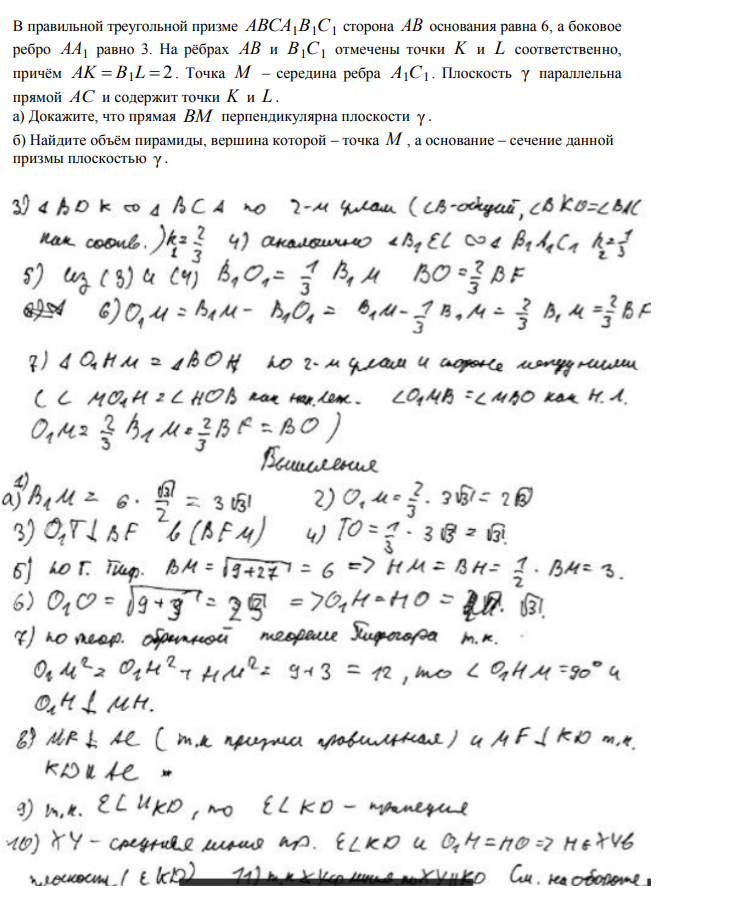 В правильной треугольной призме ABCA₁B₁C₁ сторона AB основания равна 6, а боковое
ребро AA₁ равно 3. На рёбрах AB и B₁C₁ отмечены точки K и L соответственно,
причём AK = B₁L = 2. Точка M – середина ребра A₁C₁. Плоскость γ параллельна
прямой AC и содержит точки K и L.
а) Докажите, что прямая BM перпендикулярна плоскости γ.
б) Найдите объём пирамиды, вершина которой – точка M, а основание – сечение данной
призмы плоскостью γ.
3) △BDK ∞ △BCA по 2-м углам (∠B-общий, ∠BKD=∠BAC
как соотв.) k₁=2/3 4) аналогично △B₁EL ∞ △B₁A₁C₁ k₂=1/3
5) из (3) и (4) B₁O₁ = 1/3 B₁M BO = 2/3 BF
6) O₁M = B₁M - B₁O₁ = B₁M - 1/3 B₁M = 2/3 B₁M = 2/3 BF
7) △O₁HM = △BOH по 2-м углам и стороне между ними
(∠MO₁H = ∠HOB как нак. леж. ∠O₁MB = ∠MBO как н.л.
O₁M = 2/3 B₁M = 2/3 BF = BO)
Вычисления
а) 1) B₁M = 6 · √3/2 = 3√3 2) O₁M = 2/3 · 3√3 = 2√3
3) O₁T ⊥ BF в (BFM) 4) TO = 1/3 · 3√3 = √3
5) по т. Пиф. BM = √9+27 = 6 => HM = BH = 1/2 · BM = 3.
6) O₁O = √9+3 = 2√3 => O₁H = HO = √3
7) по теор. обратной теореме Пифагора т.к.
O₁M² = O₁H² + HM² = 9+3 = 12, то ∠O₁HM = 90° и
O₁H ⊥ MH.
8) MF ⊥ AC (т.к призма правильная) и MF ⊥ KD т.к.
KD ∥ AC
9) т.к. EL ∥ KD, то ELKD – трапеция
10) XY – средняя линия тр. ELKD и O₁H = HO => H ∈ XY в
плоскости (EKD) 11) т.к XY ср линия, то XY ∥ KD См. на обороте